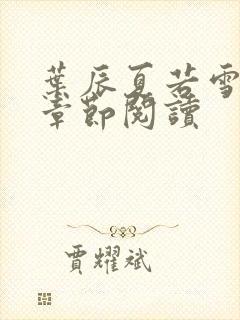 葉辰夏若雪
章節閱讀
賈耀斌